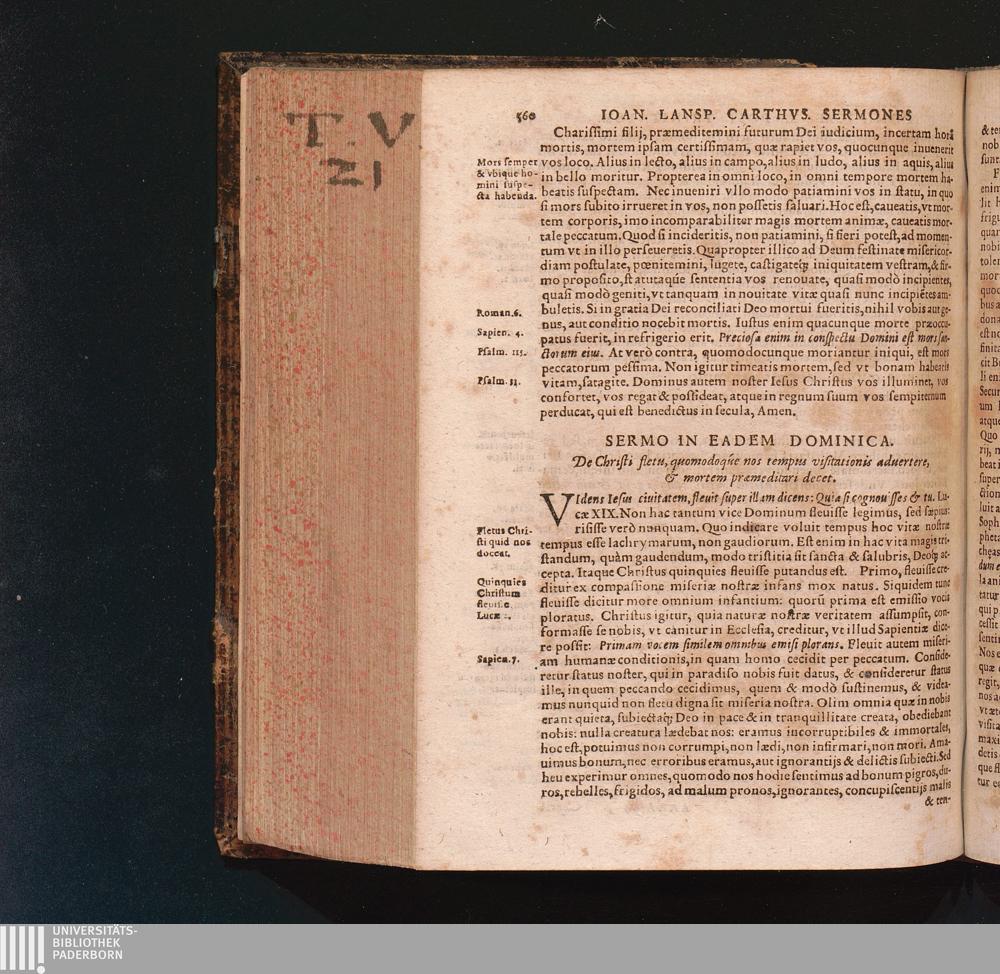 T. V
21
560 IOAN. LANSP. CARTHVS. SERMONES
Charissimi filij, præmeditemini futurum Dei iudicium, incertam horā
mortis, mortem ipsam certissimam, quæ rapiet vos, quocunque inuenerit
vos loco. Alius in lecto, alius in campo, alius in ludo, alius in aquis, alius
in bello moritur. Propterea in omni loco, in omni tempore mortem ha-
beatis suspectam. Nec inueniri vllo modo patiamini vos in statu, in quo
si mors subito irrueret in vos, non possetis saluari. Hoc est, caueatis, vt mor-
tem corporis, imo incomparabiliter magis mortem animæ, caueatis mor-
tale peccatum. Quod si incideritis, non patiamini, si fieri potest, ad momen-
tum vt in illo perseueretis. Quapropter illico ad Deum festinate misericor-
diam postulate, pœnitemini, lugete, castigateq́; iniquitatem vestram, & fir-
mo proposito, statutaqúe sententia vos renouate, quasi modò incipientes,
quasi modò geniti, vt tanquam in nouitate vitæ quasi nunc incipiẽtes am-
buletis. Si in gratia Dei reconciliati Deo mortui fueritis, nihil vobis aut ge-
nus, aut conditio nocebit mortis. Iustus enim quacunque morte præoccu-
patus fuerit, in refrigerio erit. Preciosa enim in conspectu Domini est mors san-
ctorum eius. At verò contra, quomodocunque moriantur iniqui, est mors
peccatorum pessima. Non igitur timeatis mortem, sed vt bonam habeatis
vitam, satagite. Dominus autem noster Iesus Christus vos illuminet, vos
confortet, vos regat & possideat, atque in regnum suum vos sempiternum
perducat, qui est benedictus in secula, Amen.
Mors semper
& vbique ho-
mini suspe-
cta habenda.
Roman. 6.
Sapien. 4.
Psalm. 115.
Psalm. 33.
SERMO IN EADEM DOMINICA.
De Christi fletu, quomodoqúe nos tempus visitationis aduertere,
& mortem præmeditari decet.
VIdens Iesus ciuitatem, fleuit super illam dicens: Quia si cognouisses & tu. Lu-
cæ XIX. Non hac tantum vice Dominum fleuisse legimus, sed sæpius:
risisse verò nunquam. Quo indicare voluit tempus hoc vitæ nostræ
tempus esse lachrymarum, non gaudiorum. Est enim in hac vita magis tri-
standum, quàm gaudendum, modo tristitia sit sancta & salubris, Deoq́; ac-
cepta. Itaque Christus quinquies fleuisse putandus est. Primo, fleuisse cre-
ditur ex compassione miseriæ nostræ infans mox natus. Siquidem tunc
fleuisse dicitur more omnium infantium: quorū prima est emissio vocis
ploratus. Christus igitur, quia naturæ nostræ veritatem assumpsit, con-
formasse se nobis, vt canitur in Ecclesia, creditur, vt illud Sapientiæ dice-
re possit: Primam vocem similem omnibus emisi plorans. Fleuit autem miseri-
am humanæ conditionis, in quam homo cecidit per peccatum. Conside-
retur status noster, qui in paradiso nobis fuit datus, & consideretur status
ille, in quem peccando cecidimus, quem & modò sustinemus, & videa-
mus nunquid non fletu digna sit miseria nostra. Olim omnia quæ in nobis
erant quieta, subiectaq́; Deo in pace & in tranquillitate creata, obediebant
nobis: nulla creatura lædebat nos: eramus incorruptibiles & immortales,
hoc est, potuimus non corrumpi, non lædi, non infirmari, non mori. Ama-
uimus bonum, nec erroribus eramus, aut ignorantijs & delictis subiecti. Sed
heu experimur omnes, quomodo nos hodie sentimus ad bonum pigros, du-
ros, rebelles, frigidos, ad malum pronos, ignorantes, concupiscentijs malis
& ten-
Fletus Chri-
sti quid nos
doceat.
Quinquies
Christum
fleuisse.
Lucæ 2.
Sapien. 7.
UNIVERSITÄTS-
BIBLIOTHEK
PADERBORN